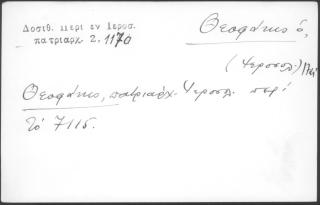 Δοσιθ. Περί εν Ιεροσ.
πατριαρχ. 2. 1170
Θεοφάνης ὁ,
(Ιεροσολ)
Θεοφάνης, πατριάρχ. Ιεροσλ. περί
τό 7115.